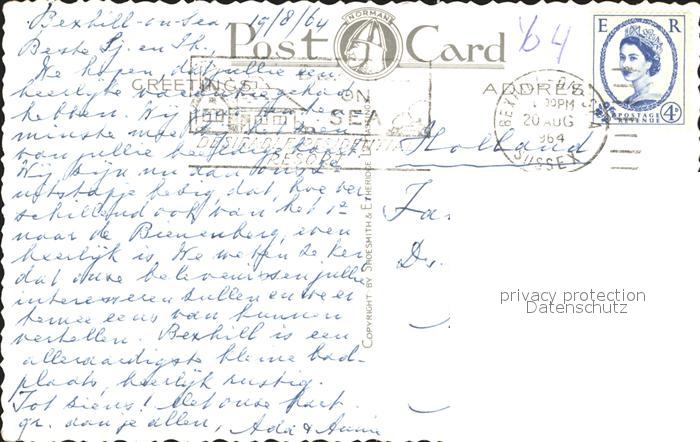 Bexhill-on-Sea 19/8/64
Beste Sj. en Th.,
We hopen dat jullie een
heerlijke
hebben Wij
minste
van jullie
Wij zijn nu aan onze
uitstapje bezig, dat, hoe ver-
schillend ook van het 1e
naar de Bienenberg, even
heerlijk is. We weten zeker
dat onze belevenissen jullie
interesseren zullen en we er
eens van kunnen
vertellen. Bexhill is een
alleraardigste kleine bad-
plaats, heerlijk rustig.
Tot siens! Met onze hart.
gr. aan je allen, Ada & Annie
Post Card
NORMAN
GREETINGS
ADDRESS
'64
ON
SEA
RESORT
BEXHILL-ON-SEA
PM
20 AUG
1964
SUSSEX
E R
POSTAGE
REVENUE
4D
Holland
Fa
D
COPYRIGHT BY SHOESMITH & ETHERIDGE
privacy protection
Datenschutz